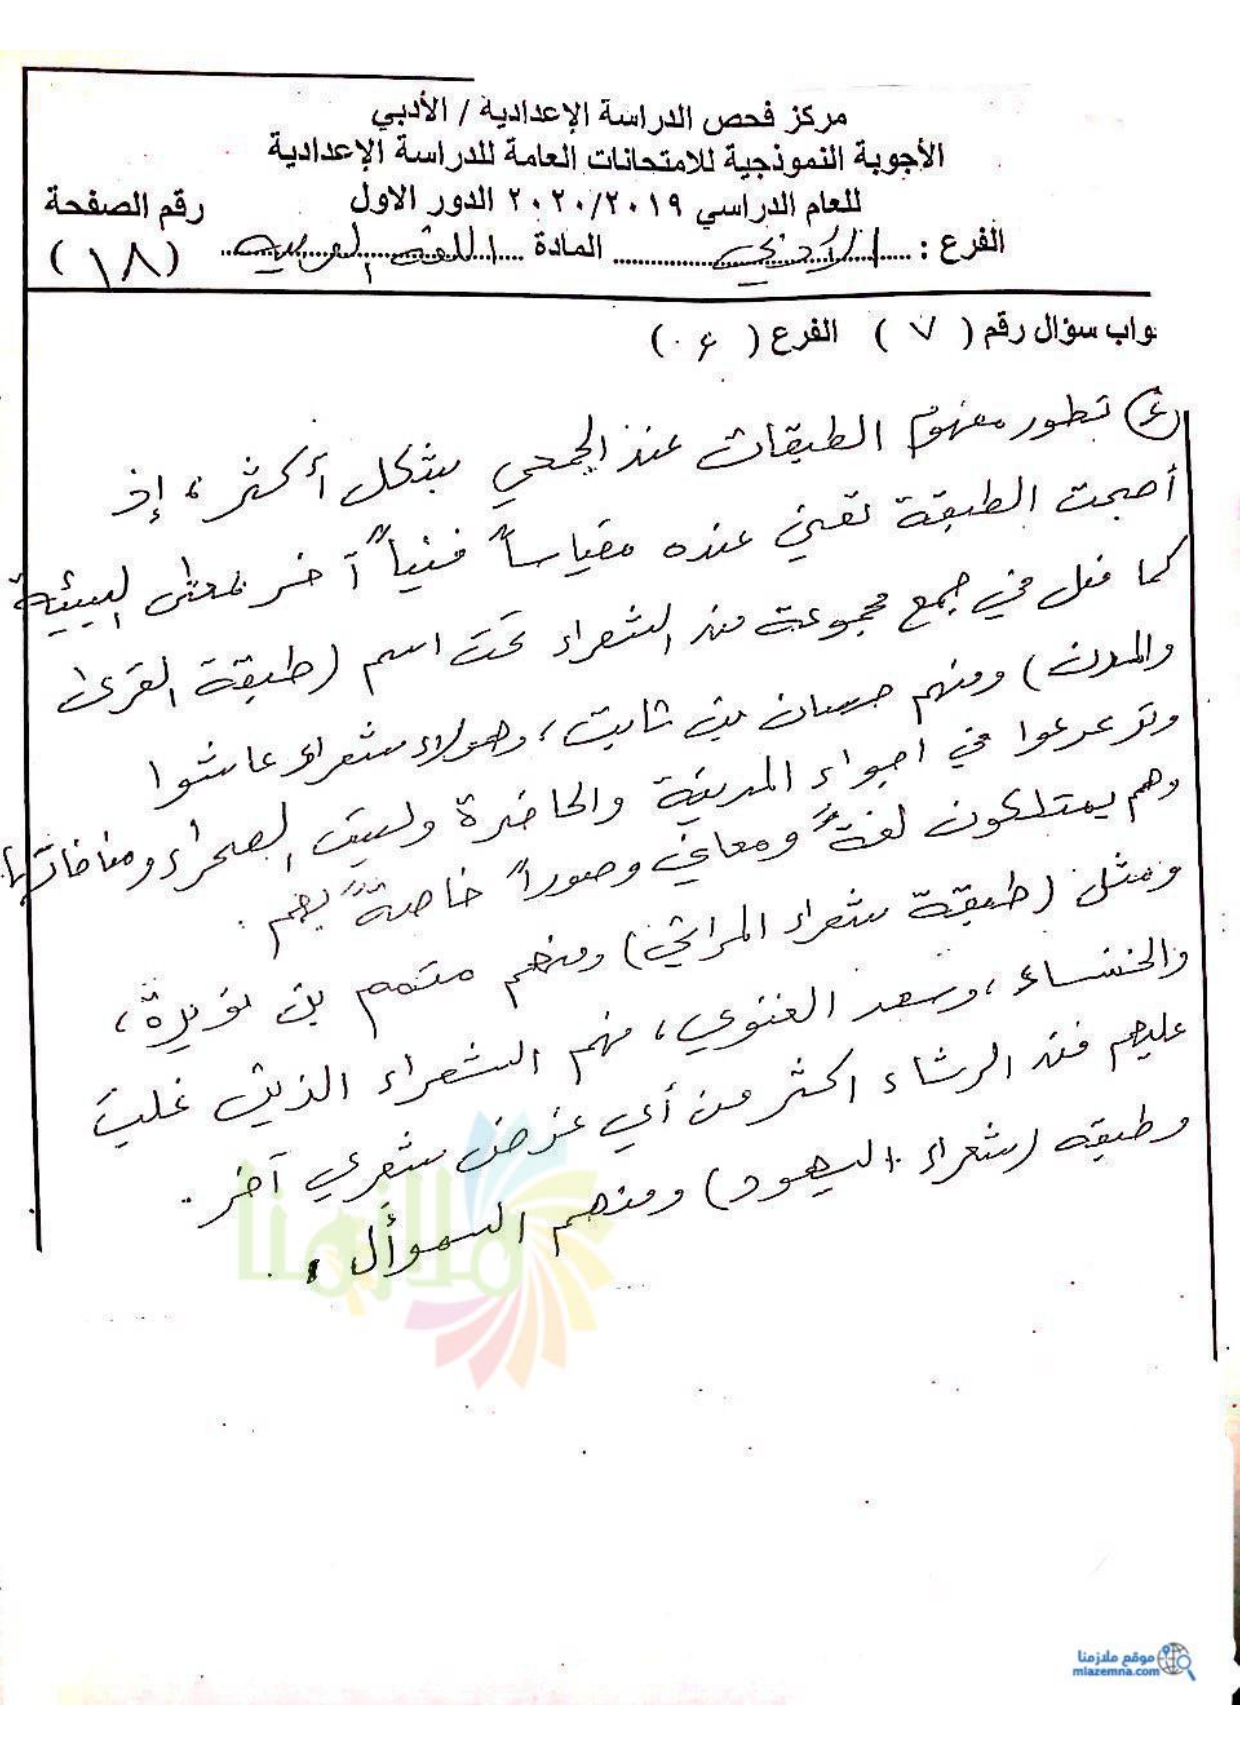 مركز فحص الدراسة الإعدادية / الأدبي
الأجوبة النموذجية للامتحانات العامة للدراسة الإعدادية
للعام الدراسي ٢٠٢٠/٢٠١٩ الدور الاول
رقم الصفحة
الفرع : الأدبي المادة اللغة العربية (١٨)
واب سؤال رقم ( ٧ ) الفرع ( ٤ )
٤) تطور مفهوم الطبقات عند الجمحي بشكل أكثر ، إذ
أصبحت الطبقة تعني عنده مقياساً فنياً آخر البيئية
كما فعل في جمع مجموعة من الشعراء تحت اسم (طبقة القرى
والمدن) ومنهم حسان بن ثابت ، وهولاء شعراء عاشوا
وترعرعوا في اجواء المدينة والحاضرة وليست الصحراء ومناخاتها .
وهم يمتلكون لغةً ومعاني وصوراً خاصةً بهم .
ومثل (طبقة شعراء المراثي) ومنهم متمم بن نويرة ،
والخنساء ، وسعد الغنوي ، فهم الشعراء الذين غلب
عليهم فن الرثاء اكثر من أي غرض شعري آخر .
وطبقه (شعراء اليهود) ومنهم السموأل .
ملازمنا
موقع ملازمنا
mlazemna.com